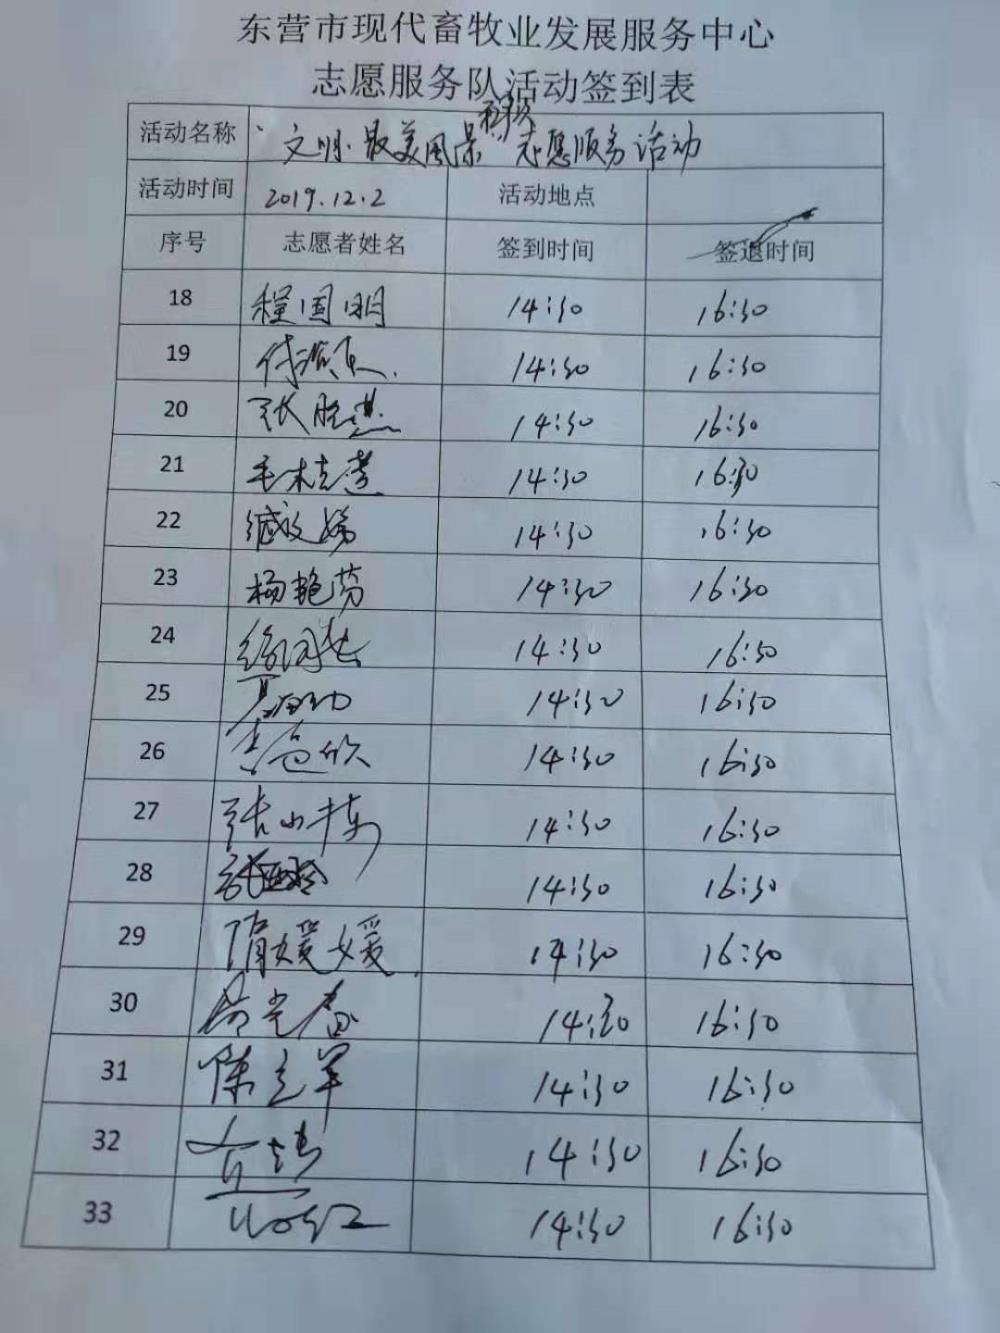 东营市现代畜牧业发展服务中心
志愿服务队活动签到表
活动名称 "文明·最美风景"志愿服务活动
活动时间 2019.12.2 活动地点
序号 志愿者姓名 签到时间 签退时间
18 程国明 14:30 16:30
19 14:30 16:30
20 张胜 14:30 16:30
21 14:30 16:30
22 14:30 16:30
23 杨艳芳 14:30 16:30
24 14:30 16:30
25 14:30 16:30
26 14:30 16:30
27 张小栋 14:30 16:30
28 张 14:30 16:30
29 隋媛媛 14:30 16:30
30 14:30 16:30
31 陈立军 14:30 16:30
32 14:30 16:30
33 14:30 16:30